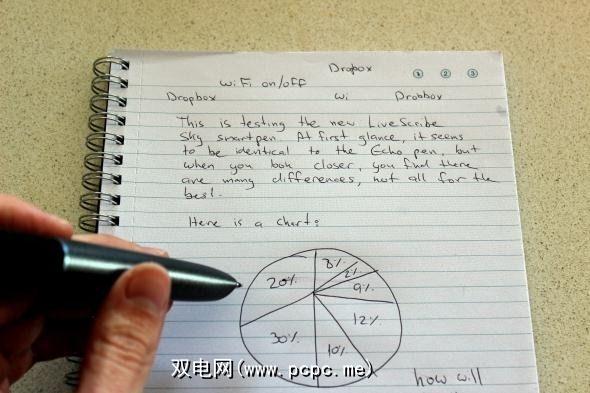 Dropbox
① ② ③
WiFi on/off
Dropbox Wi Drobbox
This is testing the new LiveScribe
Sky smartpen. At first glance, it seems
to be identical to the Echo pen, but
when you look closer, you find there
are many differences, not all for the
best.
Here is a chart:
8%
2%
20%
9%
12%
30%
10%
双电网(www.pcpc.me)
how will